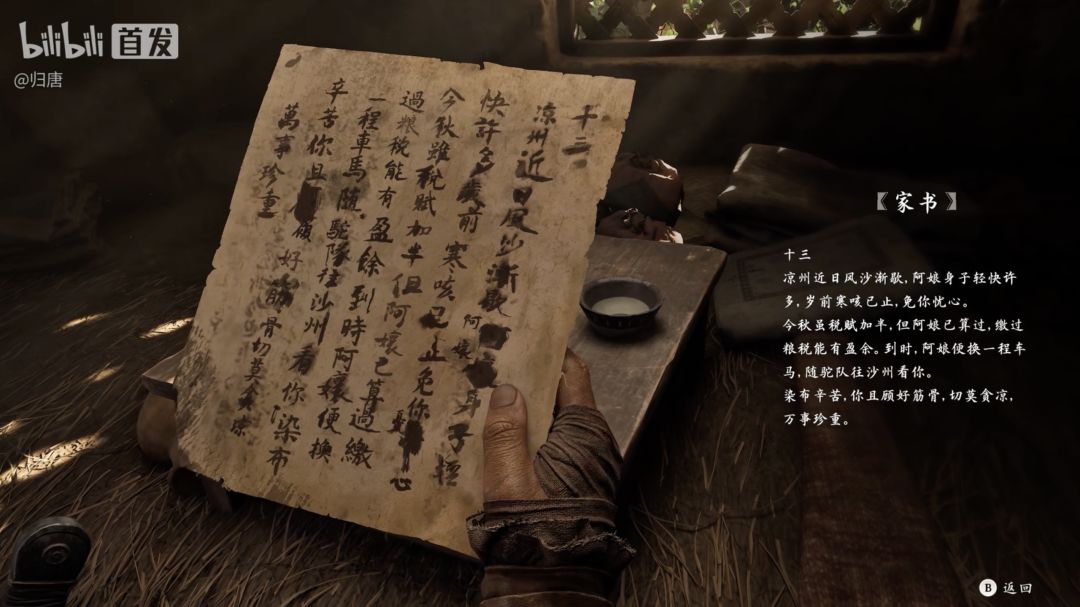 bilibili 首发
@归唐
十三
凉州近日风沙漸歇阿孃身子輕
快許多歲前寒咳已止免你憂心
今秋雖稅賦加半但阿孃已算過繳
過粮稅能有盈餘到時阿孃便換
一程車馬随駝隊往沙州看你染布
辛苦你且顧好筋骨切莫貪凉
萬事珍重
【家书】
十三
凉州近日风沙渐歇,阿娘身子轻快许
多,岁前寒咳已止,免你忧心。
今秋虽税赋加半,但阿娘已算过,缴过
粮税能有盈余。到时,阿娘便换一程车
马,随驼队往沙州看你。
染布辛苦,你且顾好筋骨,切莫贪凉,
万事珍重。
B 返回